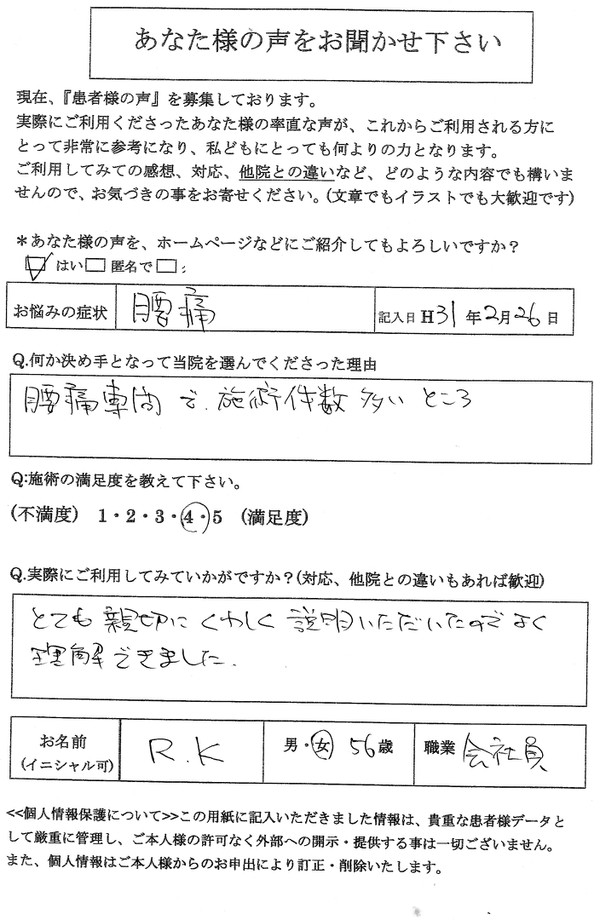 あなた様の声をお聞かせ下さい
現在、『患者様の声』を募集しております。
実際にご利用くださったあなた様の率直な声が、これからご利用される方に
とって非常に参考になり、私どもにとっても何よりの力となります。
ご利用してみての感想、対応、他院との違いなど、どのような内容でも構いま
せんので、お気づきの事をお寄せください。(文章でもイラストでも大歓迎です)
＊あなた様の声を、ホームページなどにご紹介してもよろしいですか？
☑はい□ 匿名で□;
お悩みの症状 腰痛 記入日 H31年2月26日
Q.何か決め手となって当院を選んでくださった理由
腰痛専門で、施術件数多いところ
Q:施術の満足度を教えて下さい。
(不満度) 1・2・3・4・5 (満足度)
Q.実際にご利用してみていかがですか？(対応、他院との違いもあれば歓迎)
とても親切にくわしく説明いただいたのでよく
理解できました.
お名前 R.K 男・女 56歳 職業 会社員
(イニシャル可)
<<個人情報保護について>>この用紙に記入いただきました情報は、貴重な患者様データと
して厳重に管理し、ご本人様の許可なく外部への開示・提供する事は一切ございません。
また、個人情報はご本人様からのお申出により訂正・削除いたします。